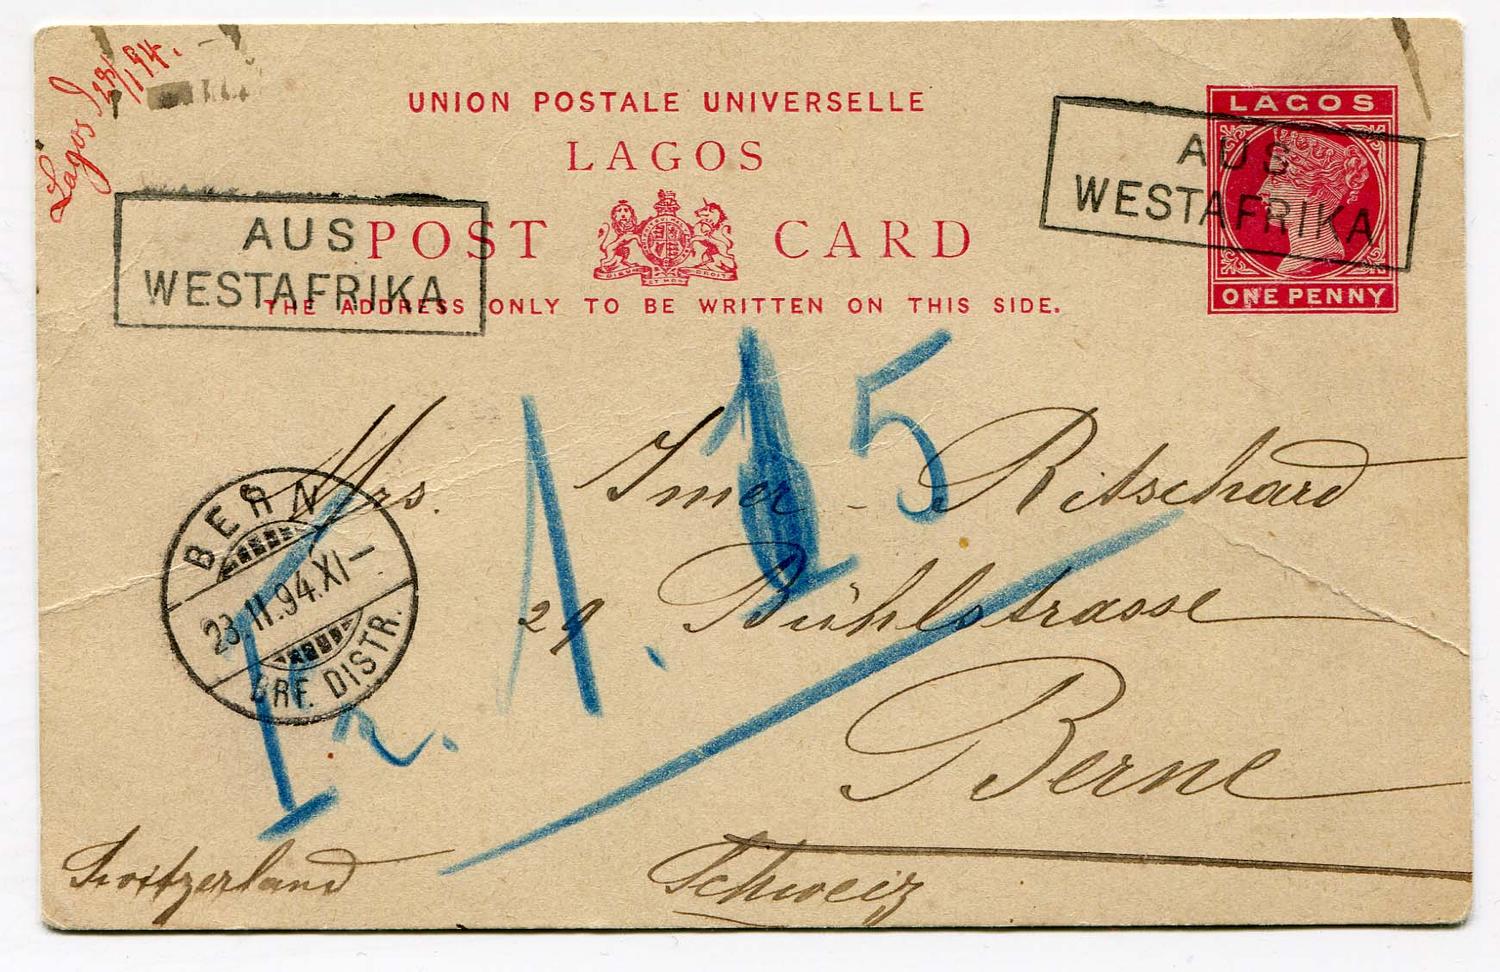 Lagos
UNION POSTALE UNIVERSELLE
LAGOS
POST CARD
THE ADDRESS ONLY TO BE WRITTEN ON THIS SIDE.
LAGOS
ONE PENNY
AUS
WESTAFRIKA
AUS
WESTAFRIKA
Mrs. Imer-Ritschard
29 Bühlstrasse
Berne
Switzerland
Schweiz
BERN
23.11.94.XI-
BRF. DISTR.
15